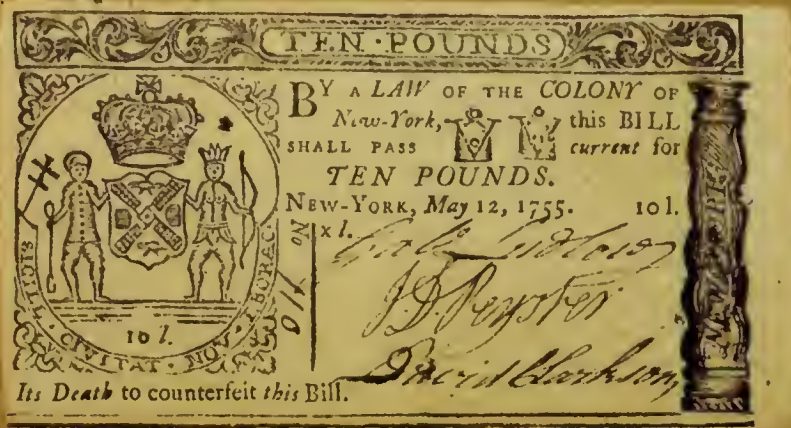 TEN · POUNDS
BY A LAW OF THE COLONY OF
New-York, this BILL
SHALL PASS current for
TEN POUNDS.
NEW-YORK, May 12, 1755. 10 l.
No
x l.
Gab. Ludlow
J D Peyster
David Clarkson
SIGILL · CIVITAT · NOV · EBORAC ·
10 l.
Its Death to counterfeit this Bill.
NEW YORK